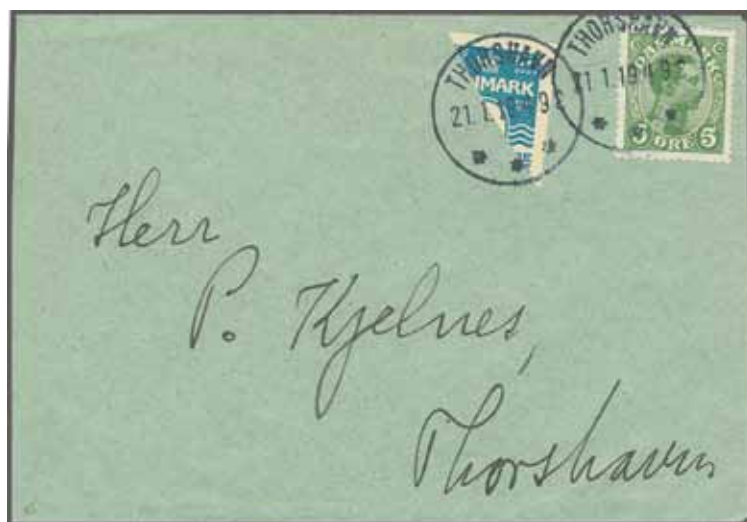 THORSHAVN
21.1.19
THORSHAVN
21.1.19
MARK
DANMARK
5 ØRE 5
Herr
P. Kjelnes,
Thorshavn